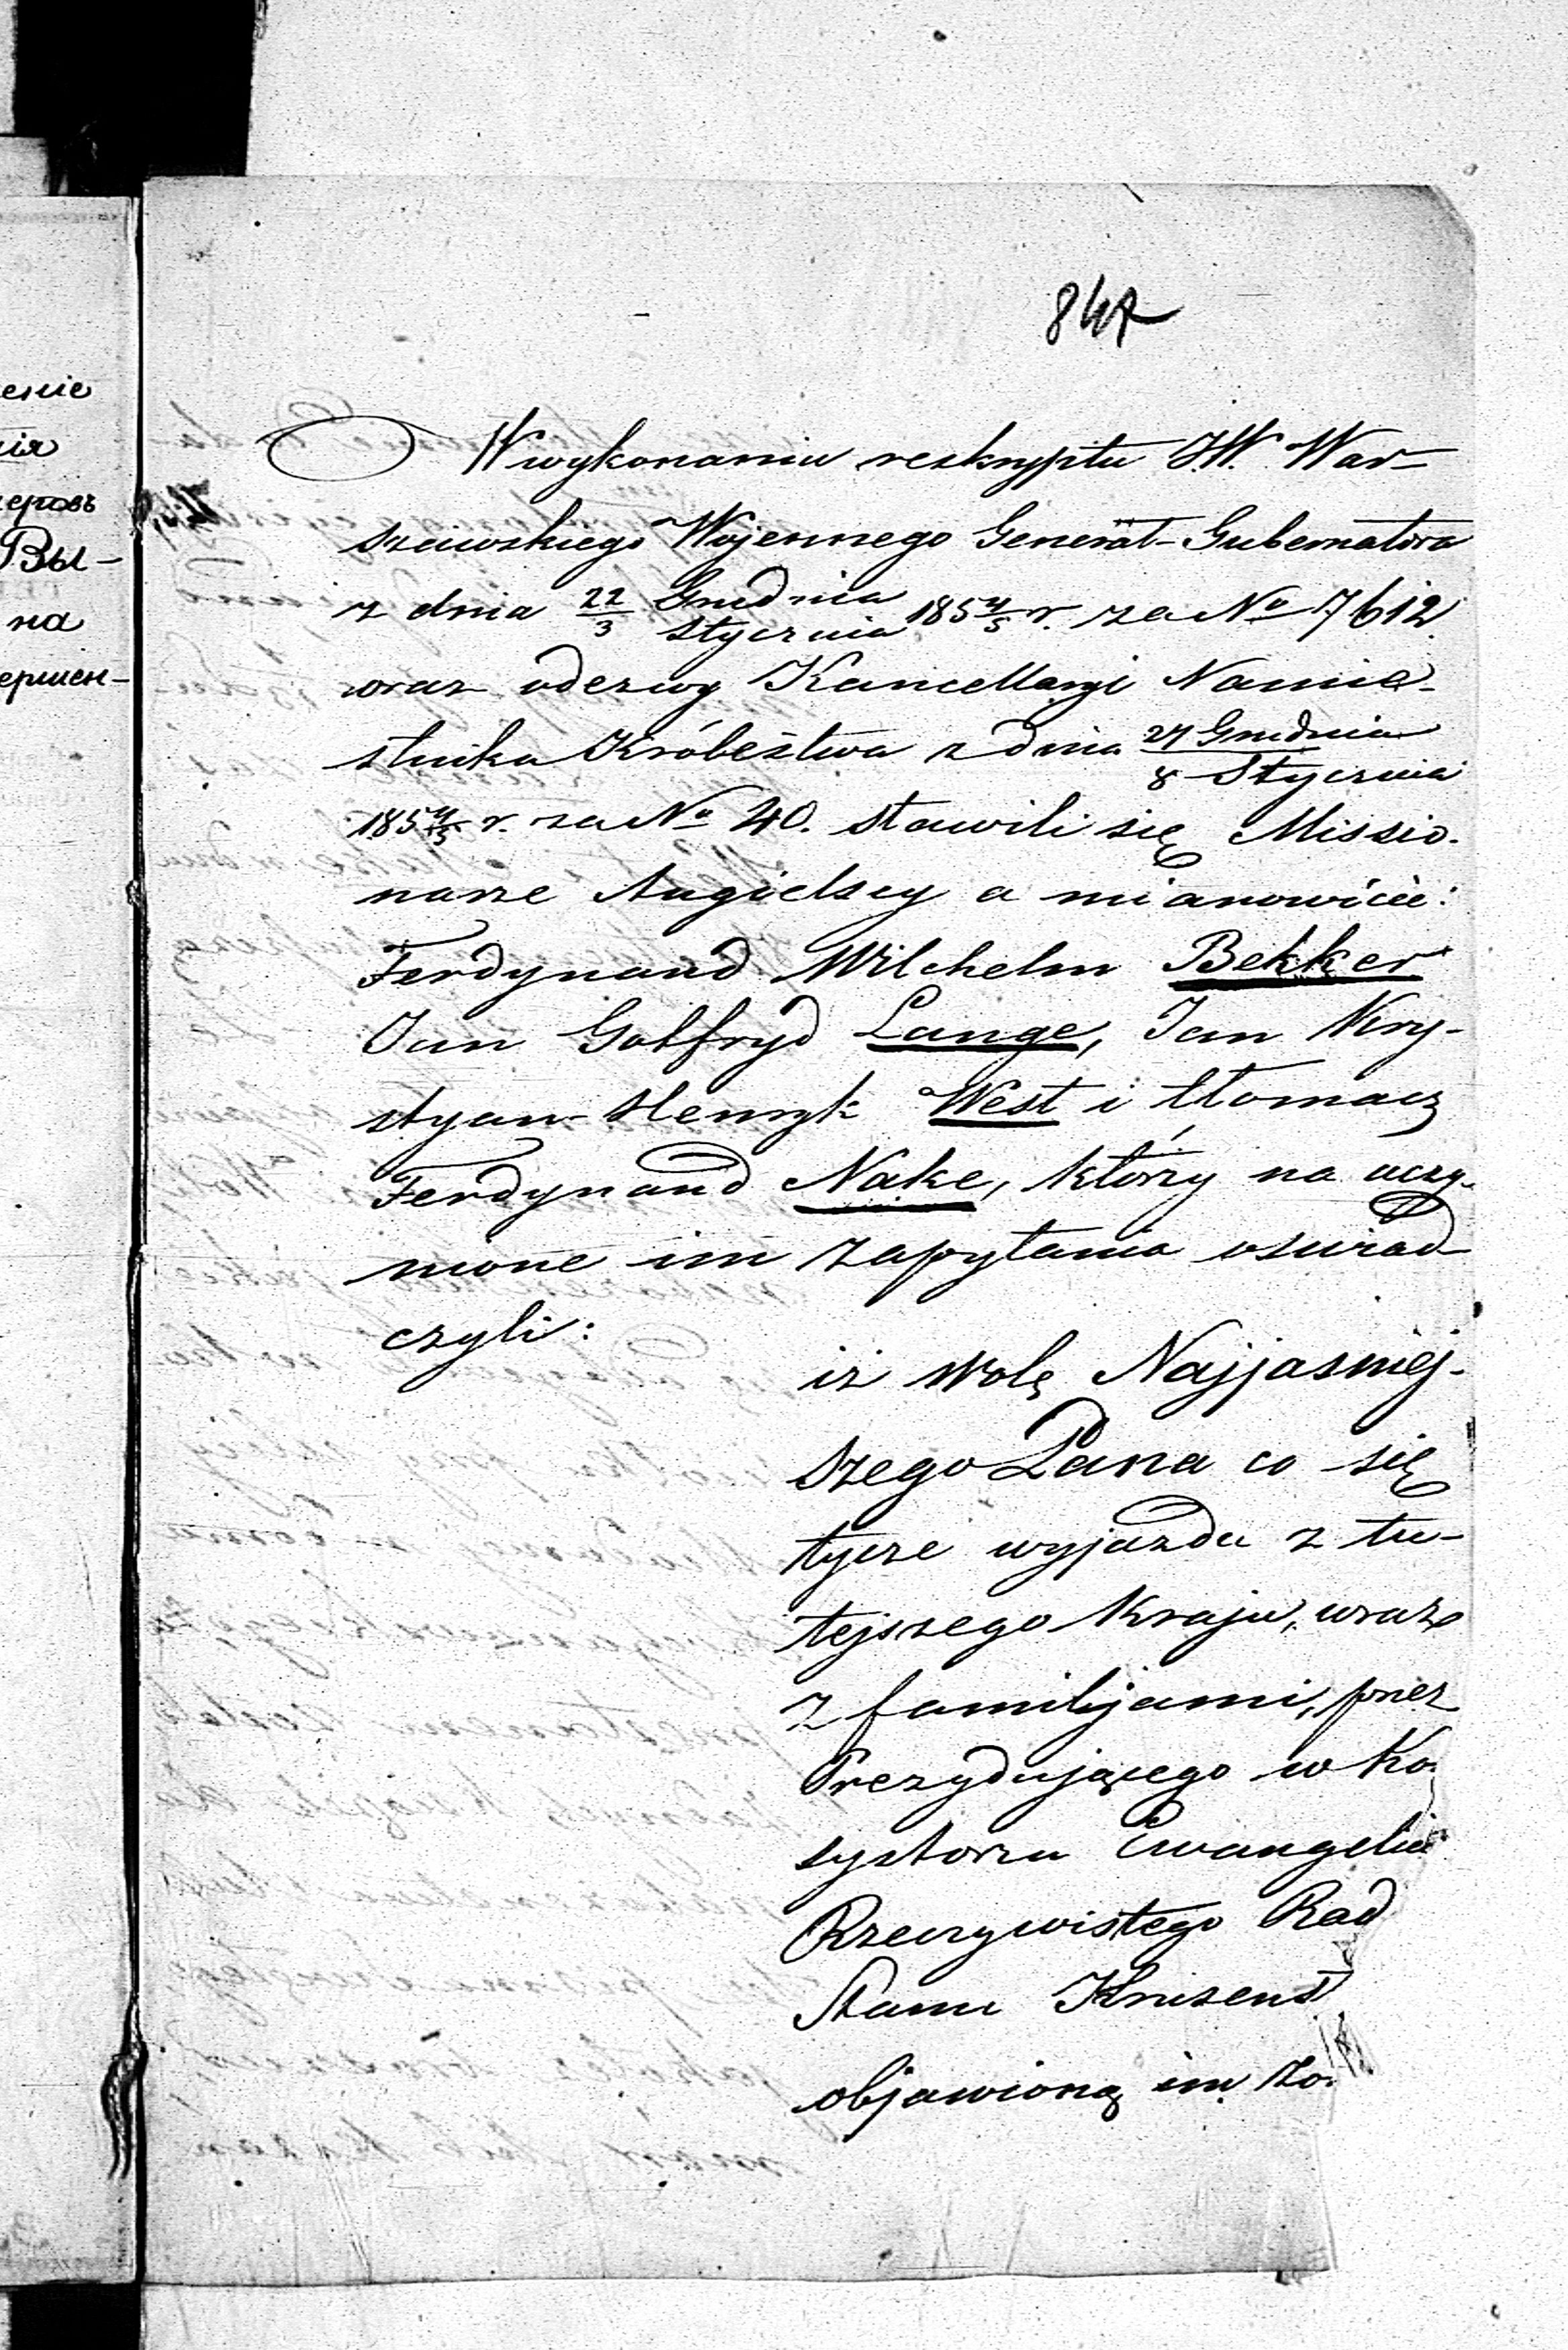 847
W wykonaniu reskryptu J.W. War-
szawskiego Wojennego Generał-Gubernatora
z dnia 22/3 Grudnia/Stycznia 185 4/5 r. za No 7612
wraz odezwy Kancellaryi Namie-
stnika Królestwa z dnia 27 Grudnia/8 Stycznia
185 4/5 r. za No 40. stawili się Missio-
narze Angielscy a mianowicie:
Ferdynand Wilchelm Bekker
Jan Gotfryd Lange, Jan Kry-
styan-Henryk West i tłomacz
Ferdynand Nake, którzy na uczy-
nione im zapytania oswiad-
czyli:
iż wolę Najjasniej-
szego Pana co się
tycze wyjazdu z tu-
tejszego Kraju, wraz
z familijami, przez
Prezydującego w Ko-
systorzu Ewangelic
Rzeczywistego Rad
Stanu Kruzenst
objawioną im zo-
ение
ія
еровъ
Вы-
на
ершен-